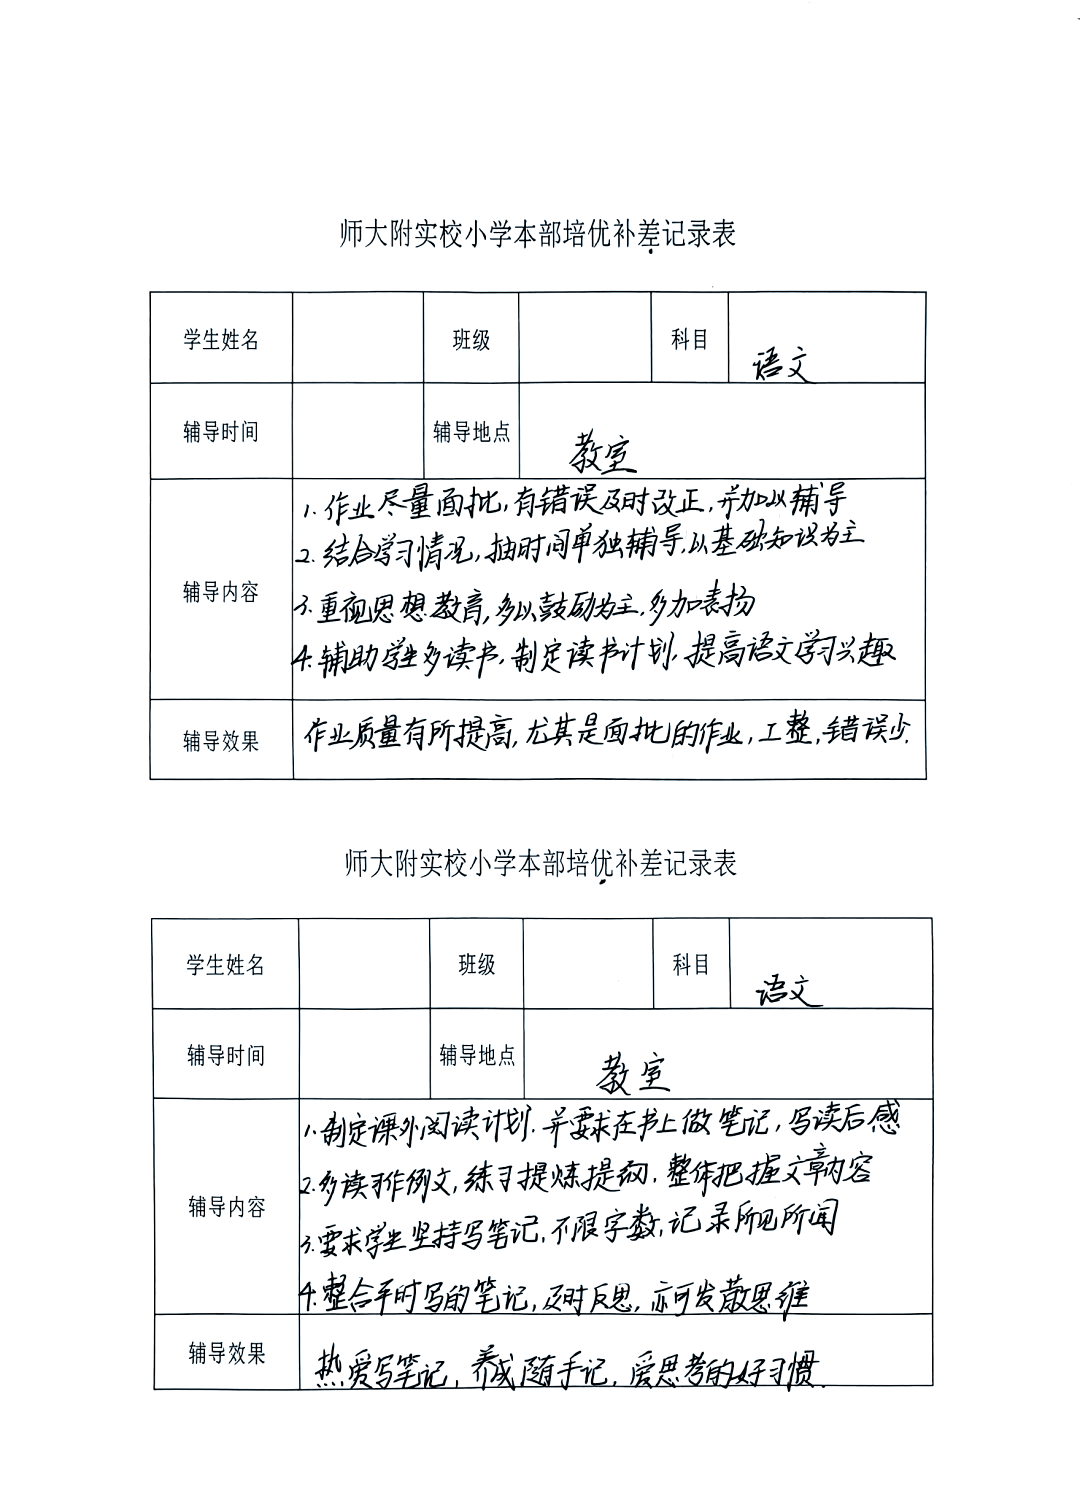 师大附实校小学本部培优补差记录表
学生姓名 班级 科目 语文
辅导时间 辅导地点 教室
辅导内容
1.作业尽量面批,有错误及时改正,并加以辅导
2.结合学习情况,抽时间单独辅导,以基础知识为主
3.重视思想教育,多以鼓励为主,多加表扬
4.辅助学生多读书,制定读书计划,提高语文学习兴趣
辅导效果 作业质量有所提高,尤其是面批的作业,工整,错误少.
师大附实校小学本部培优补差记录表
学生姓名 班级 科目 语文
辅导时间 辅导地点 教室
辅导内容
1.制定课外阅读计划.并要求在书上做笔记,写读后感
2.多读习作例文,练习提炼提纲,整体把握文章内容
3.要求学生坚持写笔记,不限字数,记录所见所闻
4.整合平时写的笔记,及时反思,亦可发散思维
辅导效果 热爱写笔记,养成随手记,爱思考的好习惯.